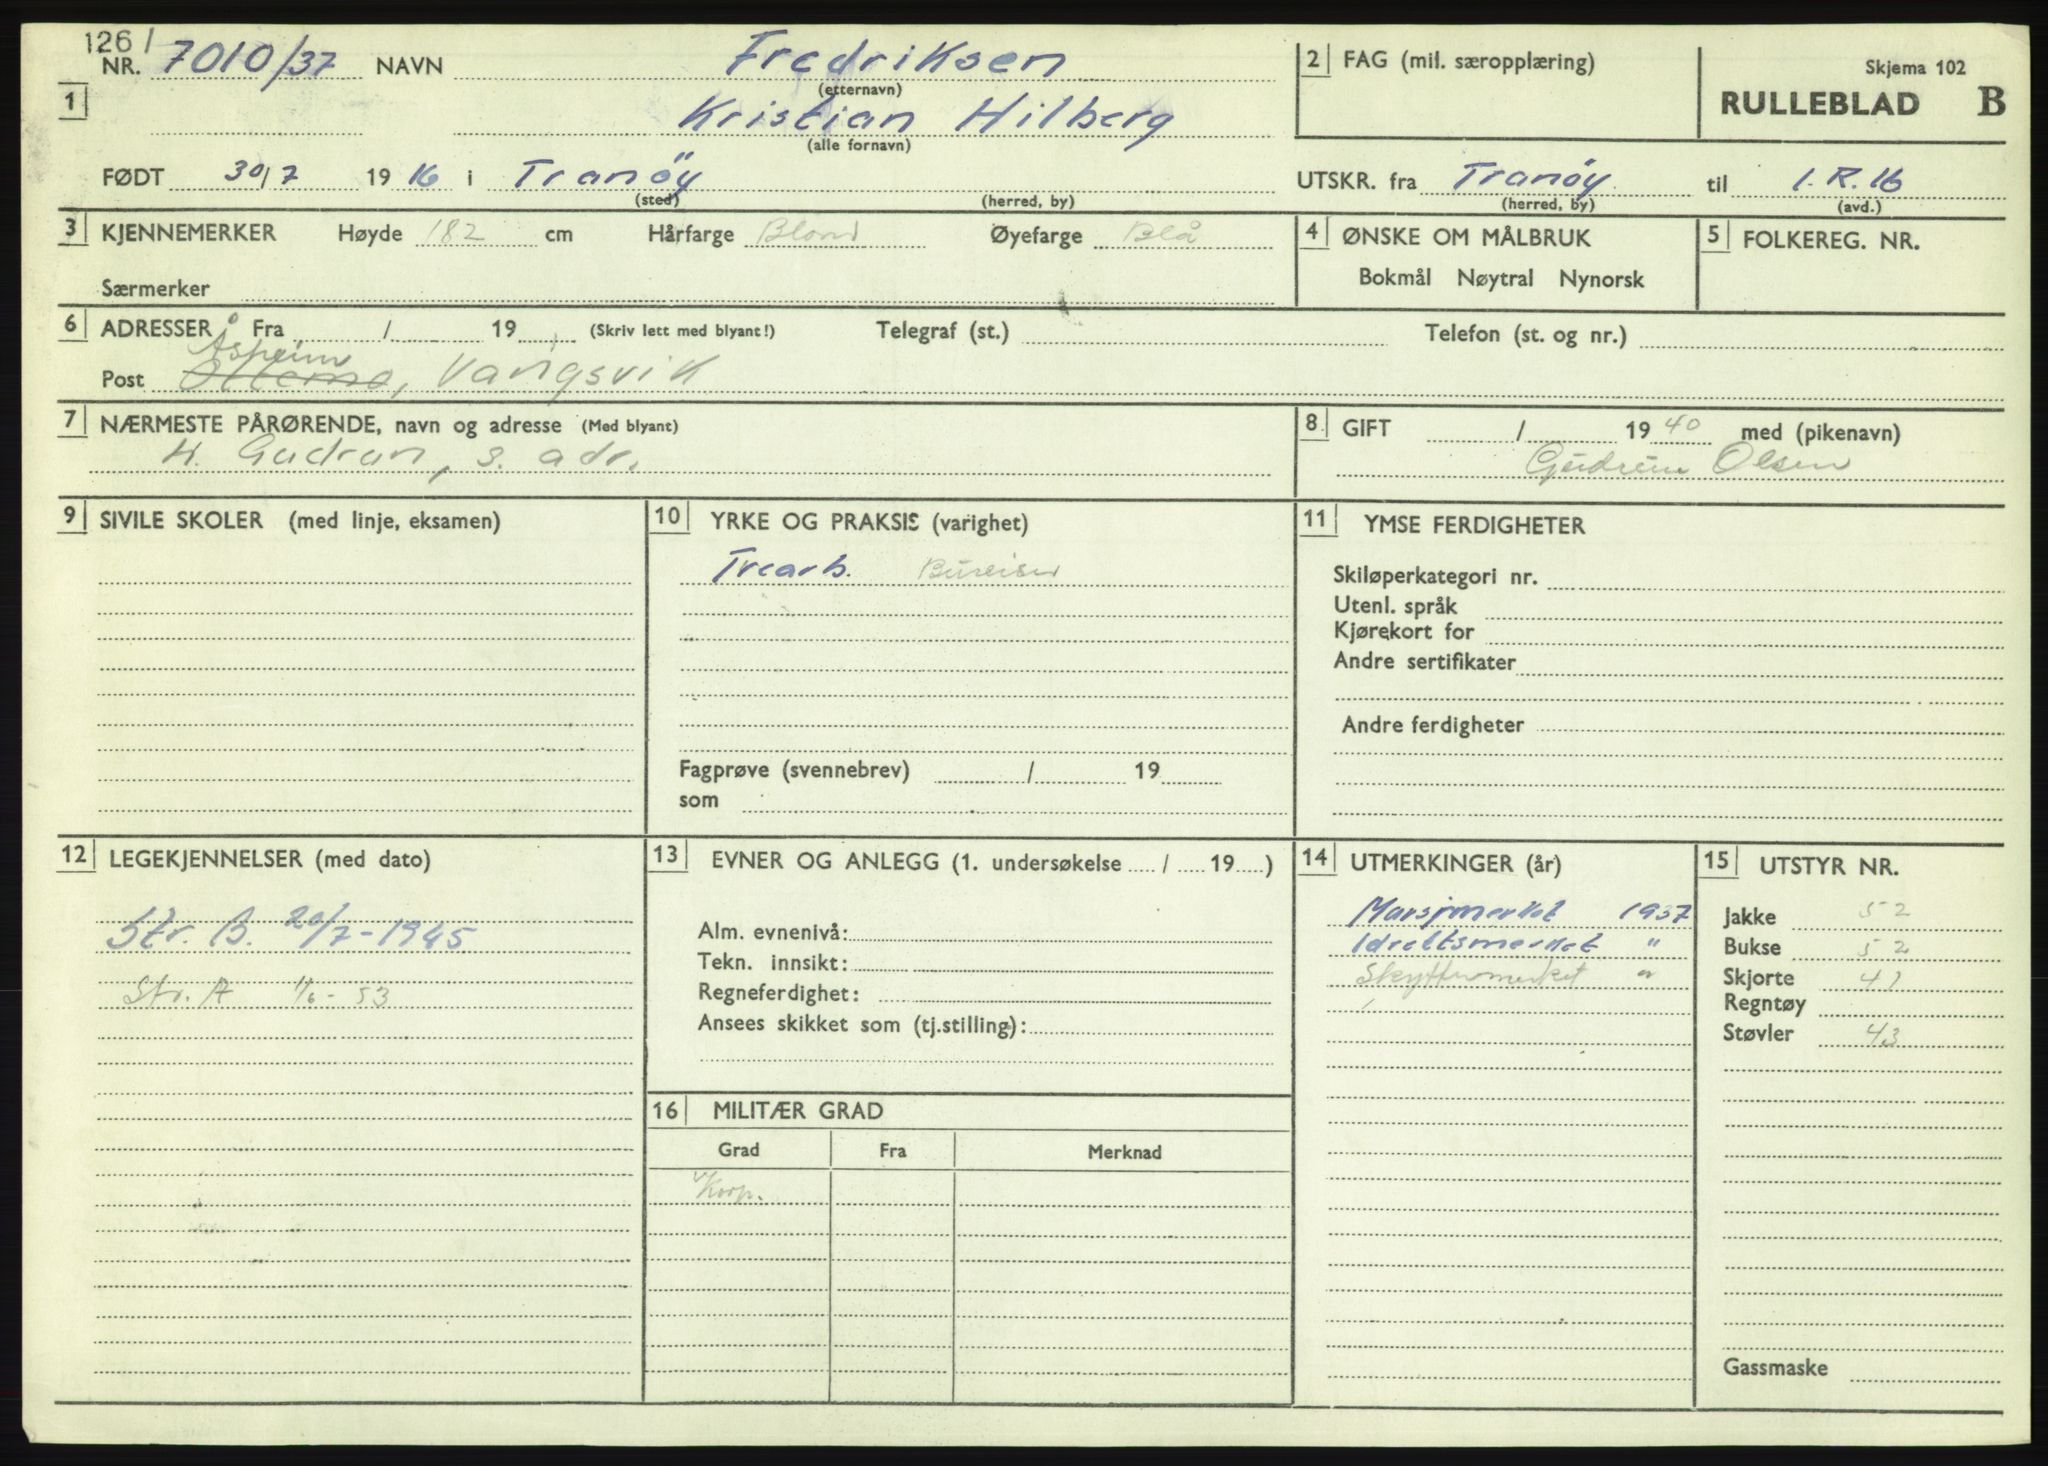 126/
NR. 7010/37 NAVN Fredriksen
(etternavn)
1 Kristian Hilberg
(alle fornavn)
2 FAG (mil. særopplæring)
Skjema 102
RULLEBLAD B
FØDT 30/7 1916 i Tranöy
(sted) (herred, by)
UTSKR. fra Tranöy til I.R. 16
(herred, by) (avd.)
3 KJENNEMERKER Høyde 182 cm Hårfarge Blond Øyefarge Blå
Særmerker
4 ØNSKE OM MÅLBRUK
Bokmål Nøytral Nynorsk
5 FOLKEREG. NR.
6 ADRESSER Fra / 19 (Skriv lett med blyant!) Telegraf (st.) Telefon (st. og nr.)
Åsheim
Post , Vangsvik
7 NÆRMESTE PÅRØRENDE, navn og adresse (Med blyant)
H. Gudrun, s. adr.
8 GIFT / 1940 med (pikenavn)
Gudrun Olsen
9 SIVILE SKOLER (med linje, eksamen)
10 YRKE OG PRAKSIS (varighet)
Trearb. Bureiser
Fagprøve (svennebrev) / 19
som
11 YMSE FERDIGHETER
Skiløperkategori nr.
Utenl. språk
Kjørekort for
Andre sertifikater
Andre ferdigheter
12 LEGEKJENNELSER (med dato)
Str. B. 20/7-1945
Str. A 1/6-53
13 EVNER OG ANLEGG (1. undersøkelse / 19 )
Alm. evnenivå:
Tekn. innsikt:
Regneferdighet:
Ansees skikket som (tj.stilling):
14 UTMERKINGER (år)
Marsjmerket 1937
Idrettsmerket "
Skyttermerket "
15 UTSTYR NR.
Jakke 52
Bukse 52
Skjorte 41
Regntøy
Støvler 43
Gassmaske
16 MILITÆR GRAD
Grad Fra Merknad
Korp.